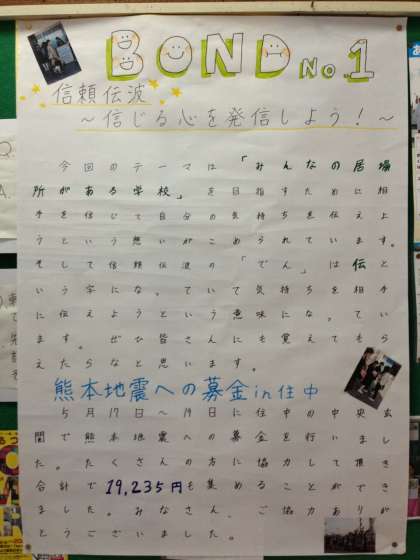 BOND No.1
信頼伝波
～信じる心を発信しよう！～
今回のテーマは「みんなの居場
所がある学校」を目指すために相
手を信じて自分の気持ちを伝えよ
うという想いがこめられています。
そして信頼伝波の「でん」は伝と
いう字になっていて気持ちを相手
に伝えようという意味になってい
ます。ぜひ皆さんにも覚えてもら
えたらなと思います。
熊本地震への募金in住中
5月17日～19日に住中の中央玄
関で熊本地震への募金を行いまし
た。たくさんの方に協力して頂き
合計で19,235円も集めることができ
ました。みなさん、ご協力ありが
とうございました。